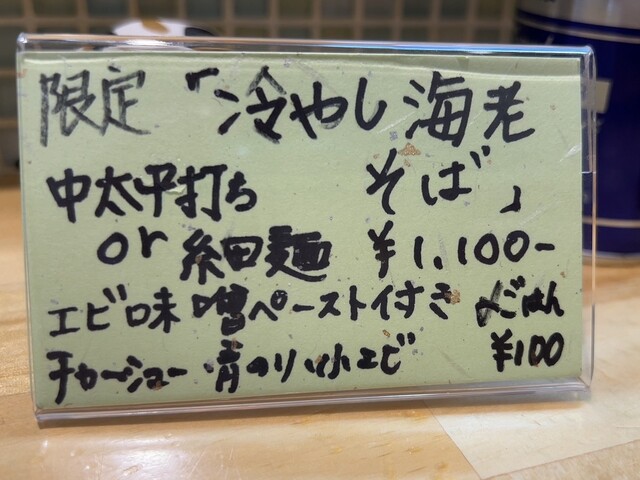 限定「冷やし海老
そば」
中太平打ち
or 細麺 ¥1,100-
エビ味噌ペースト付き 〆ごはん
チャーシュー・青のり・小エビ ¥100